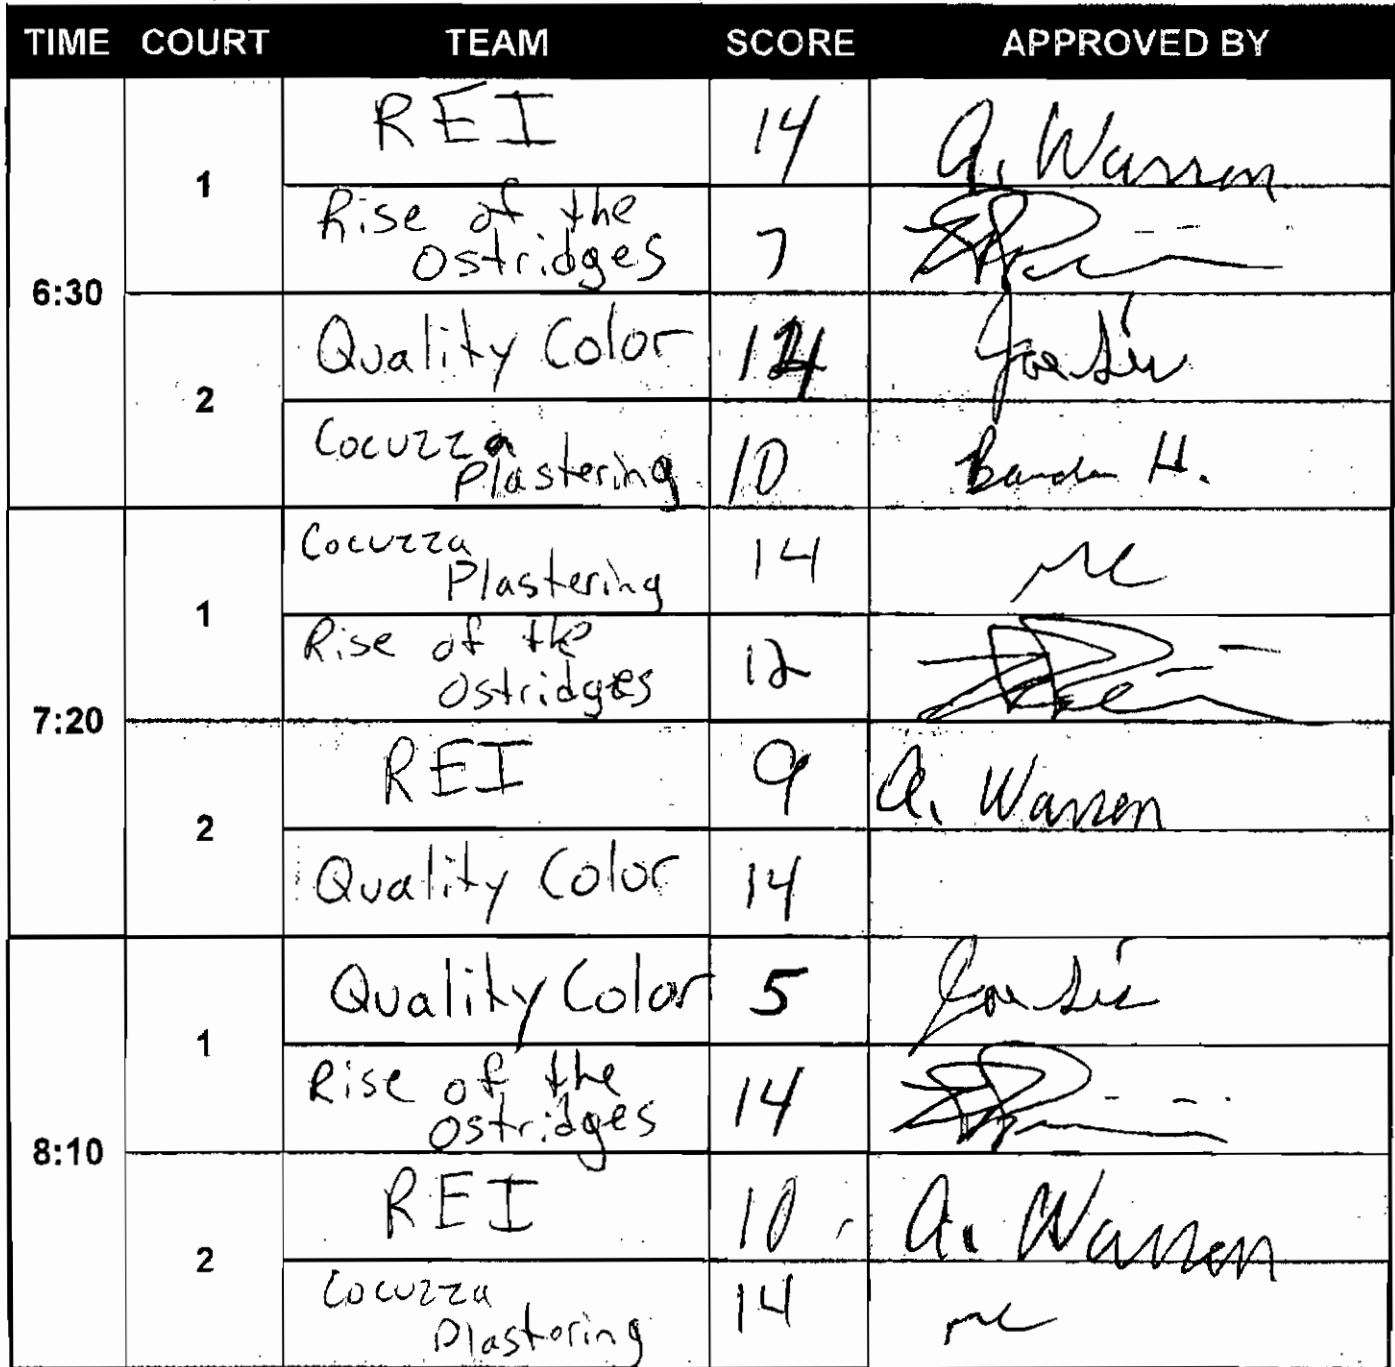 TIME COURT TEAM SCORE APPROVED BY
6:30
1
REI 14 A. Warren
Rise of the
Ostridges 7
2
Quality Color 14
Cocuzza
Plastering 10 H.
7:20
1
Cocuzza
Plastering 14
Rise of the
Ostridges 12
2
REI 9 A. Warren
Quality Color 14
8:10
1
Quality Color 5
Rise of the
Ostridges 14
2
REI 10 A. Warren
Cocuzza
Plastering 14